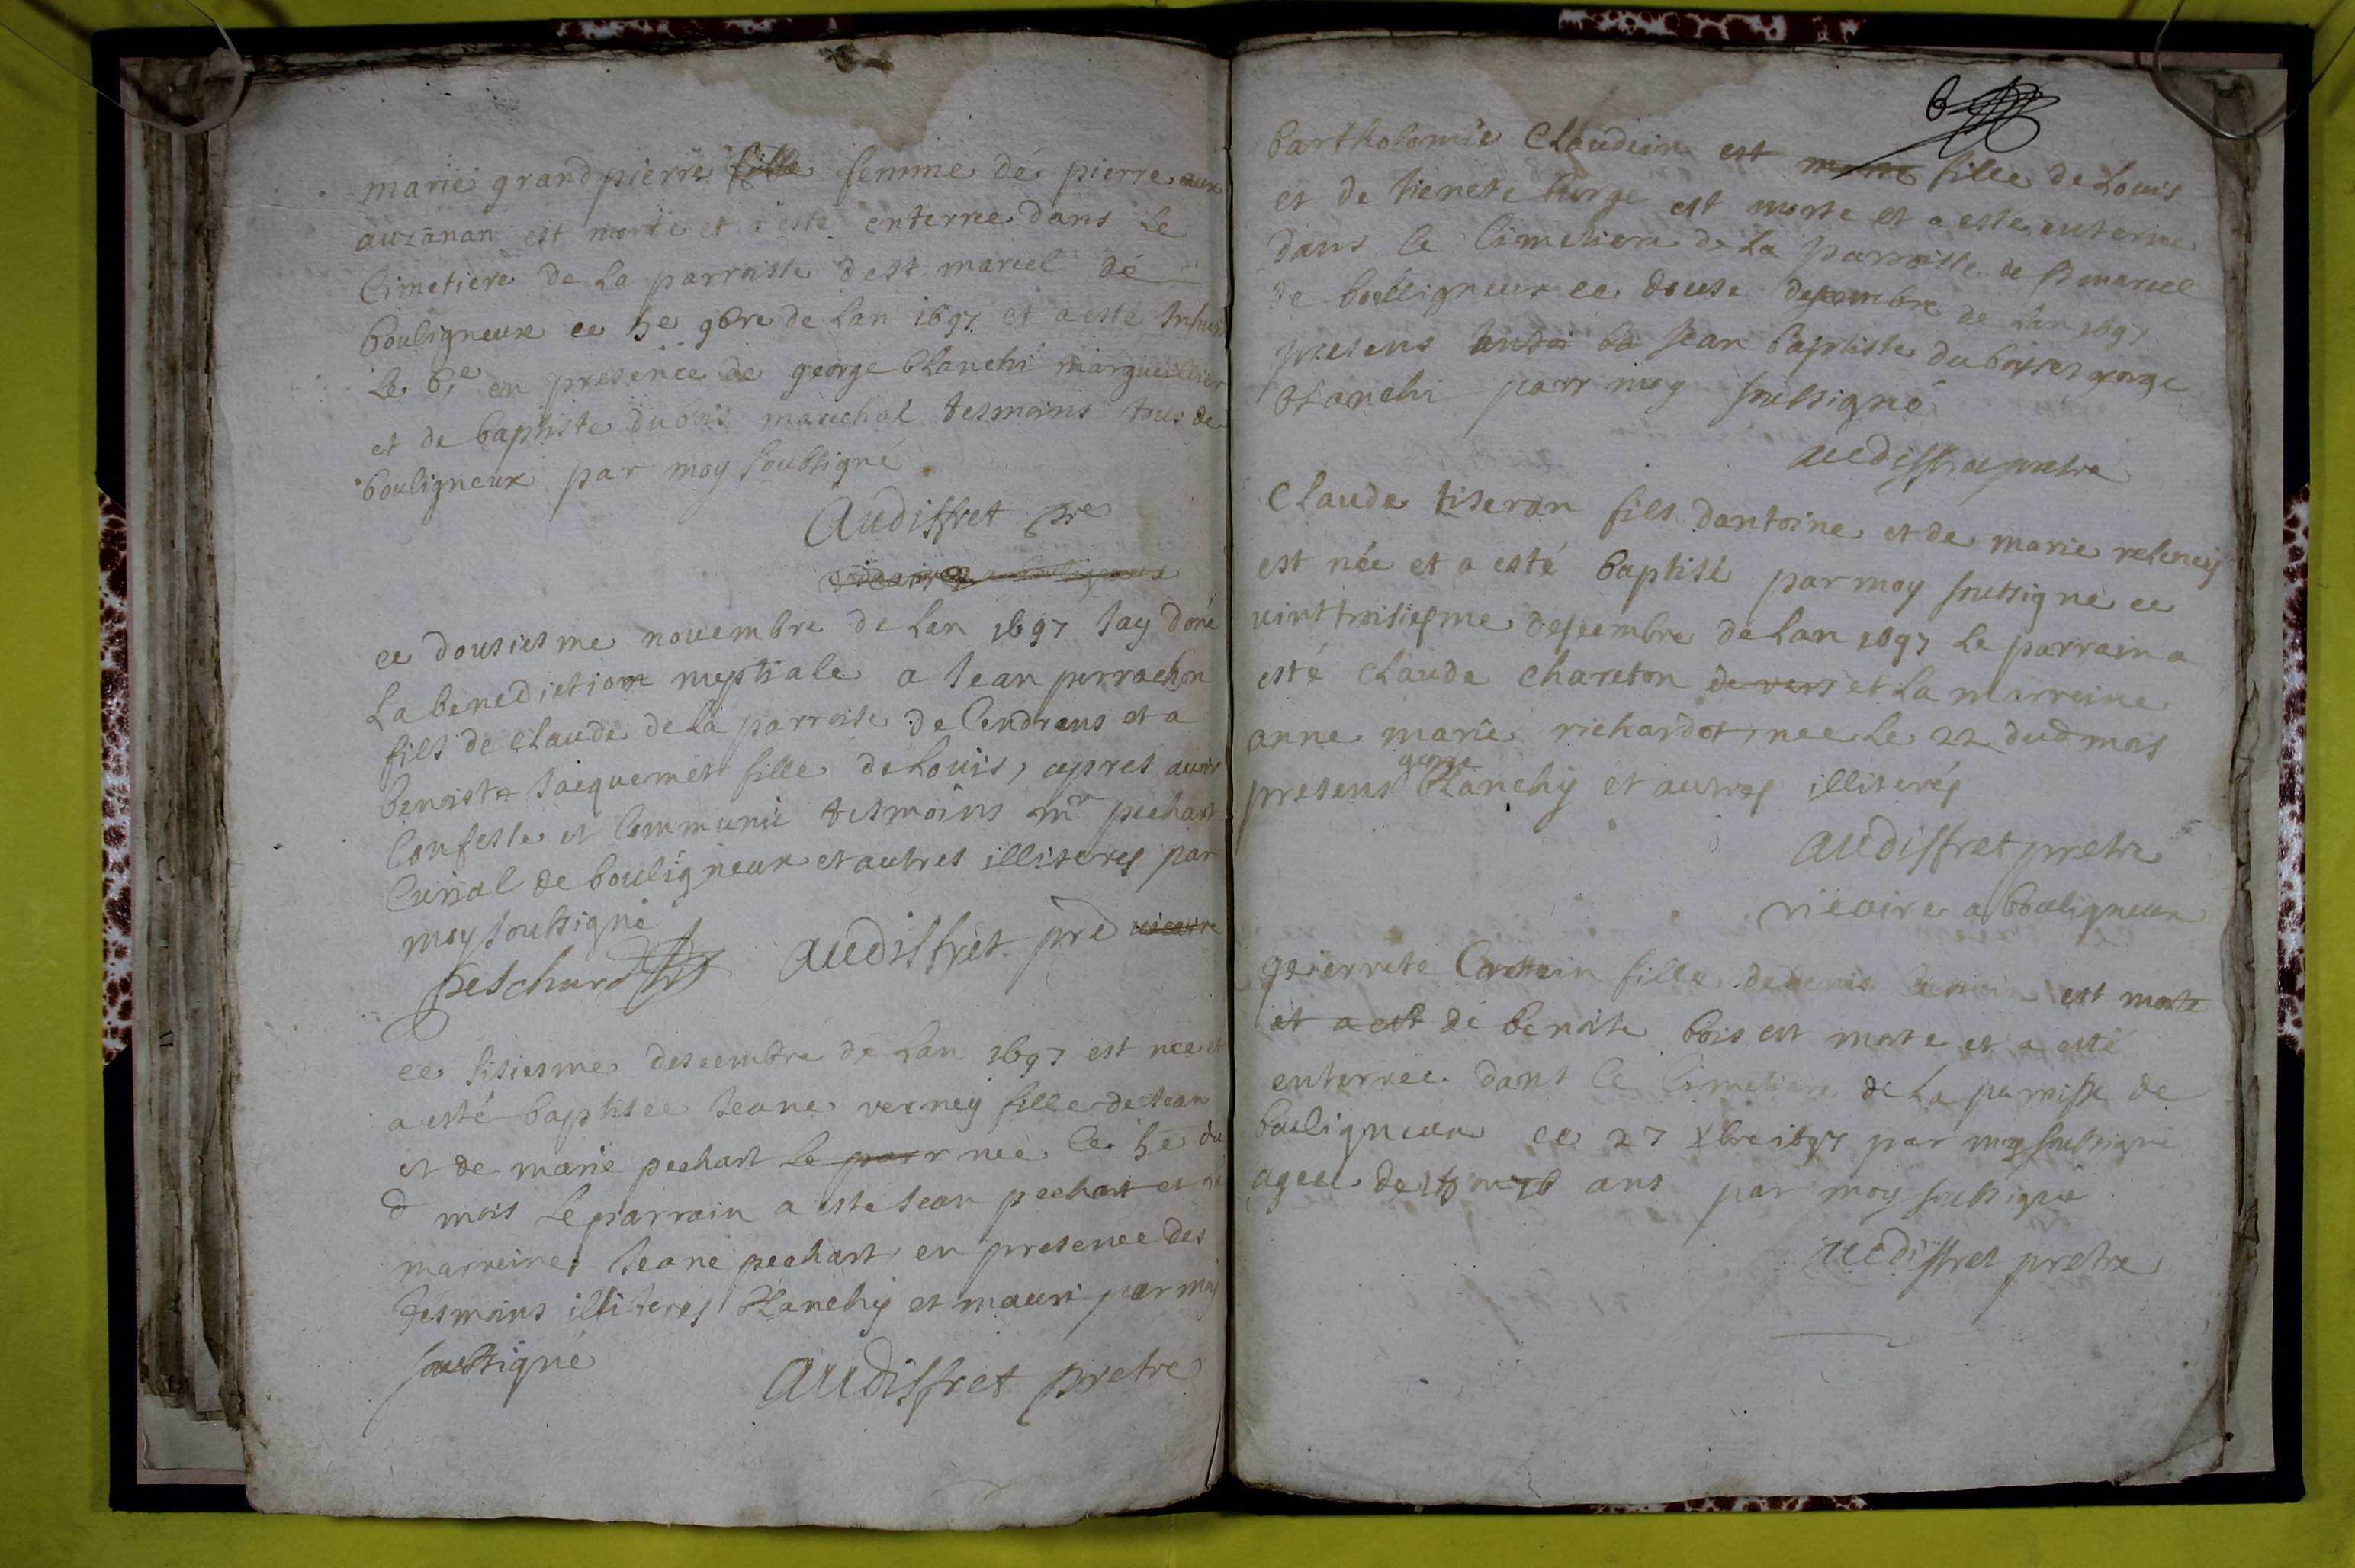 marie grand pierre fille femme de pierre aux
auzanan est morte et a este enterree dans le
Cimetiere de la parroisse de st marcel de
bouligneux ce 5e 9bre de lan 1697 et a este
le 6e en presence de george blanchi marguillier
et de baptiste dubois marechal tesmoins tous de
bouligneux par moy soubsigné
Audiffret pre
vicaire a bouligneux
ce dousiesme novembre de lan 1697 Jay doné
la benediction nuptiale a Jean perrachon
fils de claude de la parroise de Cendrans et a
benoiste Jacquemet fille de Louis, apres avoir
Confesse et Communié tesmoins mr pechart
Curial de bouligneux et autres illiterés par
moy soubsigné
peschard Audiffret pre vicaire
ce sisiesme descembre de lan 1697 est nee et
a esté baptisee Jeane verney fille de Jean
et de marie pechart le parr nee le 5e du
d mois Le parrain a este Jean pechart et
marreine Jeane pechart en presence des
tesmoins illiterés blanchy et mauri par moy
soubsigné
Audiffret pretre
6
bartholomie Claudein est morte fille de Louis
et de est morte et a este enterree
dans le Cimetiere de la parroisse de st marcel
de bouligneux ce douse descembre de lan 1697
presens Jean baptiste dubois et george
blanchi parr moy soubsigné
audiffret pretre
Claude tiseran fils dantoine et de marie
est née et a esté baptisé par moy soubsigné ce
vinttroisiesme descembre de lan 1697 le parrain a
esté Claude Chareton de vers et la marreine
anne marie richardot, nee le 22 dud mois
george
presens blanchy et autres illiterés
audiffret pretre
vicaire a bouligneux
pierrete fille de denis est morte
et a est de benoite bois est morte et a esté
enterree dans le Cimetiere de la parroisse de
bouligneux ce 27 xbre 1697 par moy soubsigné
agee de ans par moy soubsigné
audiffret pretre